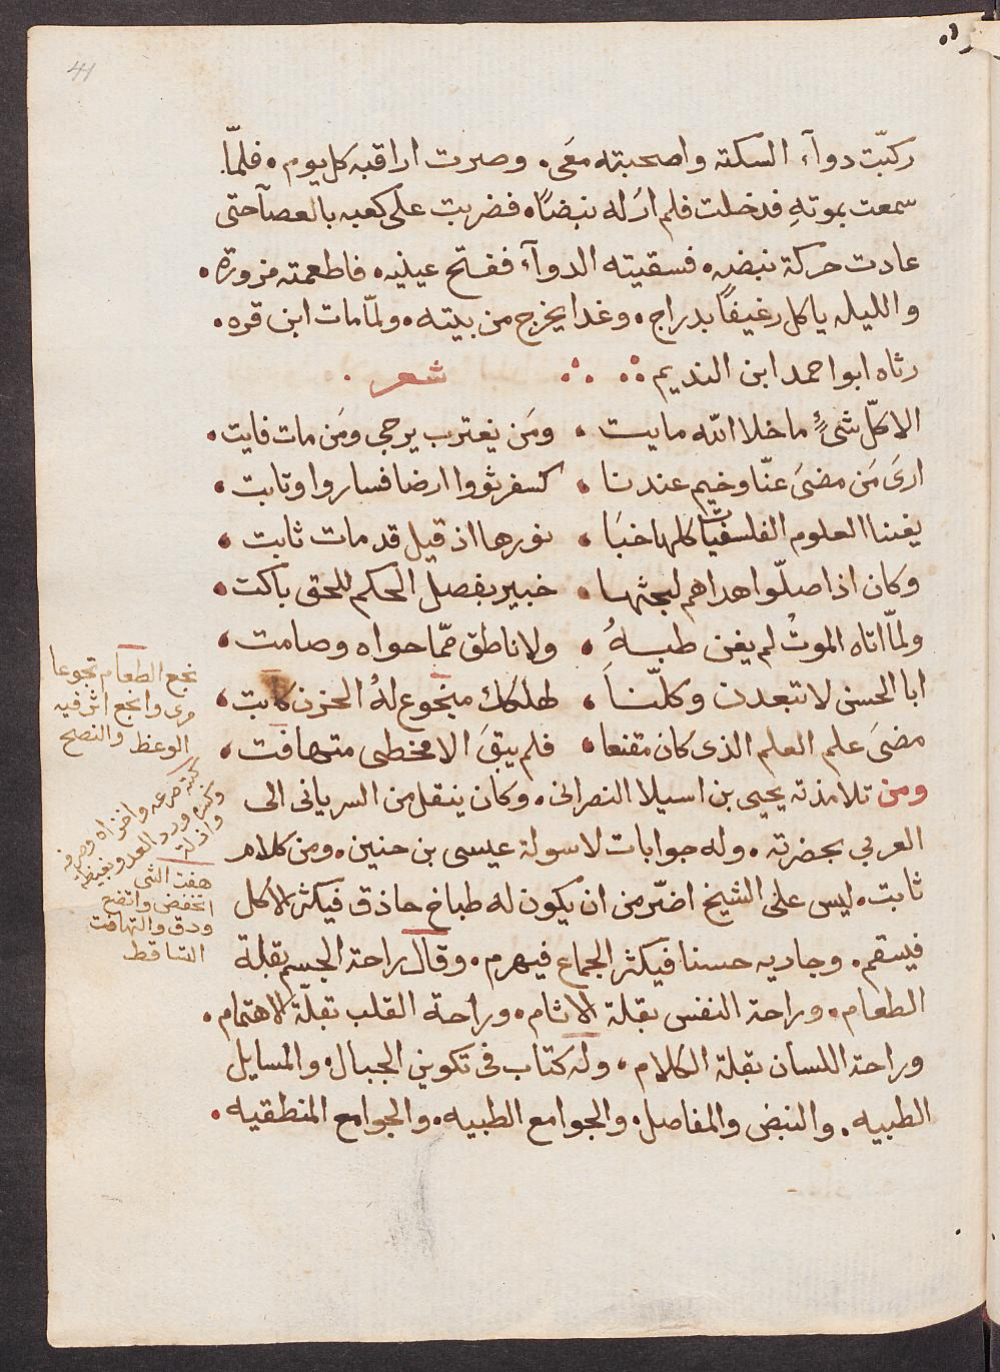 41
ركبّت دوآء السكته واصحبته معَى. وصرت اراقبه كل يوم . فلمّا
سمعت بموتهِ فدخلت فلم ارَ له نبضًا . فضربت على كعبه بالعصآ حتى
عادت حركة نبضه . فسقيته الدوآء ففتح عينيه . فاطعمته مزورة .
والليله ياكل رغيفًا بدراج . وغدا يخرج من بيته . ولمّا مات ابن قره .
رثاه ابو احمد ابن النديم ∴ ∴ شعر .
الا كلّ شئٍ ما خلا الله مايت . ومَن يغترب يرجى ومَن مات فايت .
ارىَ مَن مضىَ عنّا وخيم عندنا . كسفر ثووا ارضا فساروا وتابت .
يغننا العلوم الفلسفيات كلها خبَا . نورها اذ قيل قد مات ثابت .
وكان اذا ضلّوا هداهم لبحثها . خبير بفصل الحكم للحق باكت .
ولمّا اتاه الموتُ لم يغن طبهُ . ولا ناطق ممّا حواه وصامت .
ابا الحسن لا تبعدن وكلّناَ . لهلكك منجوع لهُ الحزن كابت .
مضىَ علم العلم الذى كان مقنعا . فلم يبقَ الا مخطى متهافت .
ومن تلامذته يحيى بن اسيلا النصرانى . وكان ينقل من السريانى الى
العربي بحضرته . وله جوابات لاسولة عيسى بن حنين . ومن كلام
ثابت . ليس على الشيخ اضرّ من ان يكون له طباخ حاذق فيكثر الاكل
فيسقم . وجاريه حسنا فيكثر الجماع فيهرم . وقال راحة الجسم بقلة
الطعام . وراحة النفس بقلة الاثام . وراحة القلب بقلّة الاهتمام .
وراحة اللسان بقلة الكلام . وله كتاب فى تكوين الجبال . والمسايل
الطبيه . والنبض والمفاصل . والجوامع الطبيه . والجوامع المنطقيه .
نجع الطعام نجوعا
مرى وانجع اثر فيه
الوعظ والنصح
كبته صرعه واخزاه وصرفه
وكسره ورد العدو بغيظه
واذله
هفت الشى
انخفض واتضع
ودق والتهافت
التساقط